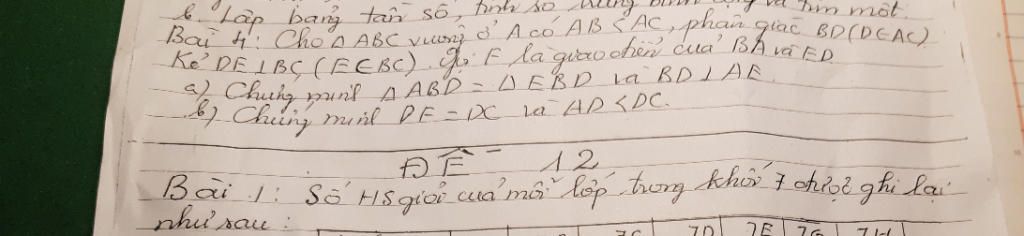 b. Lập bảng tần số, tính số trung bình cộng và tìm mốt.
Bài 4: Cho Δ ABC vuông ở A có AB < AC, phân giác BD (D∈AC)
Kẻ DE ⊥ BC, (E∈BC). gọi F là giao điểm của BA và ED
a) Chứng minh Δ ABD = Δ EBD và BD ⊥ AE
b) Chứng minh DF = DC và AD < DC.
ĐỀ 12
Bài 1: Số HS giỏi của mỗi lớp trong khối 7 được ghi lại
như sau:
7C 7D 7E 7G 7H